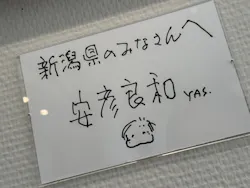 新潟県のみなさんへ
安彦良和 YAS.